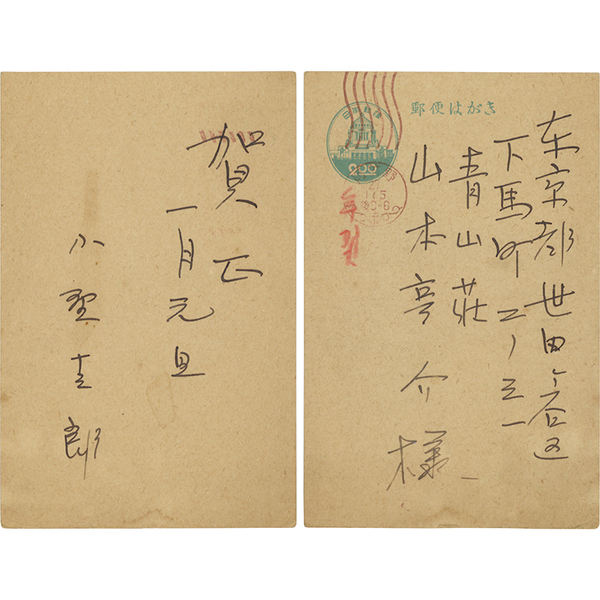 賀正
一月元旦
小
郎
郵便はがき
200
東京都世田ヶ谷区
下馬町二ノ三一
青山荘
山本亨介様